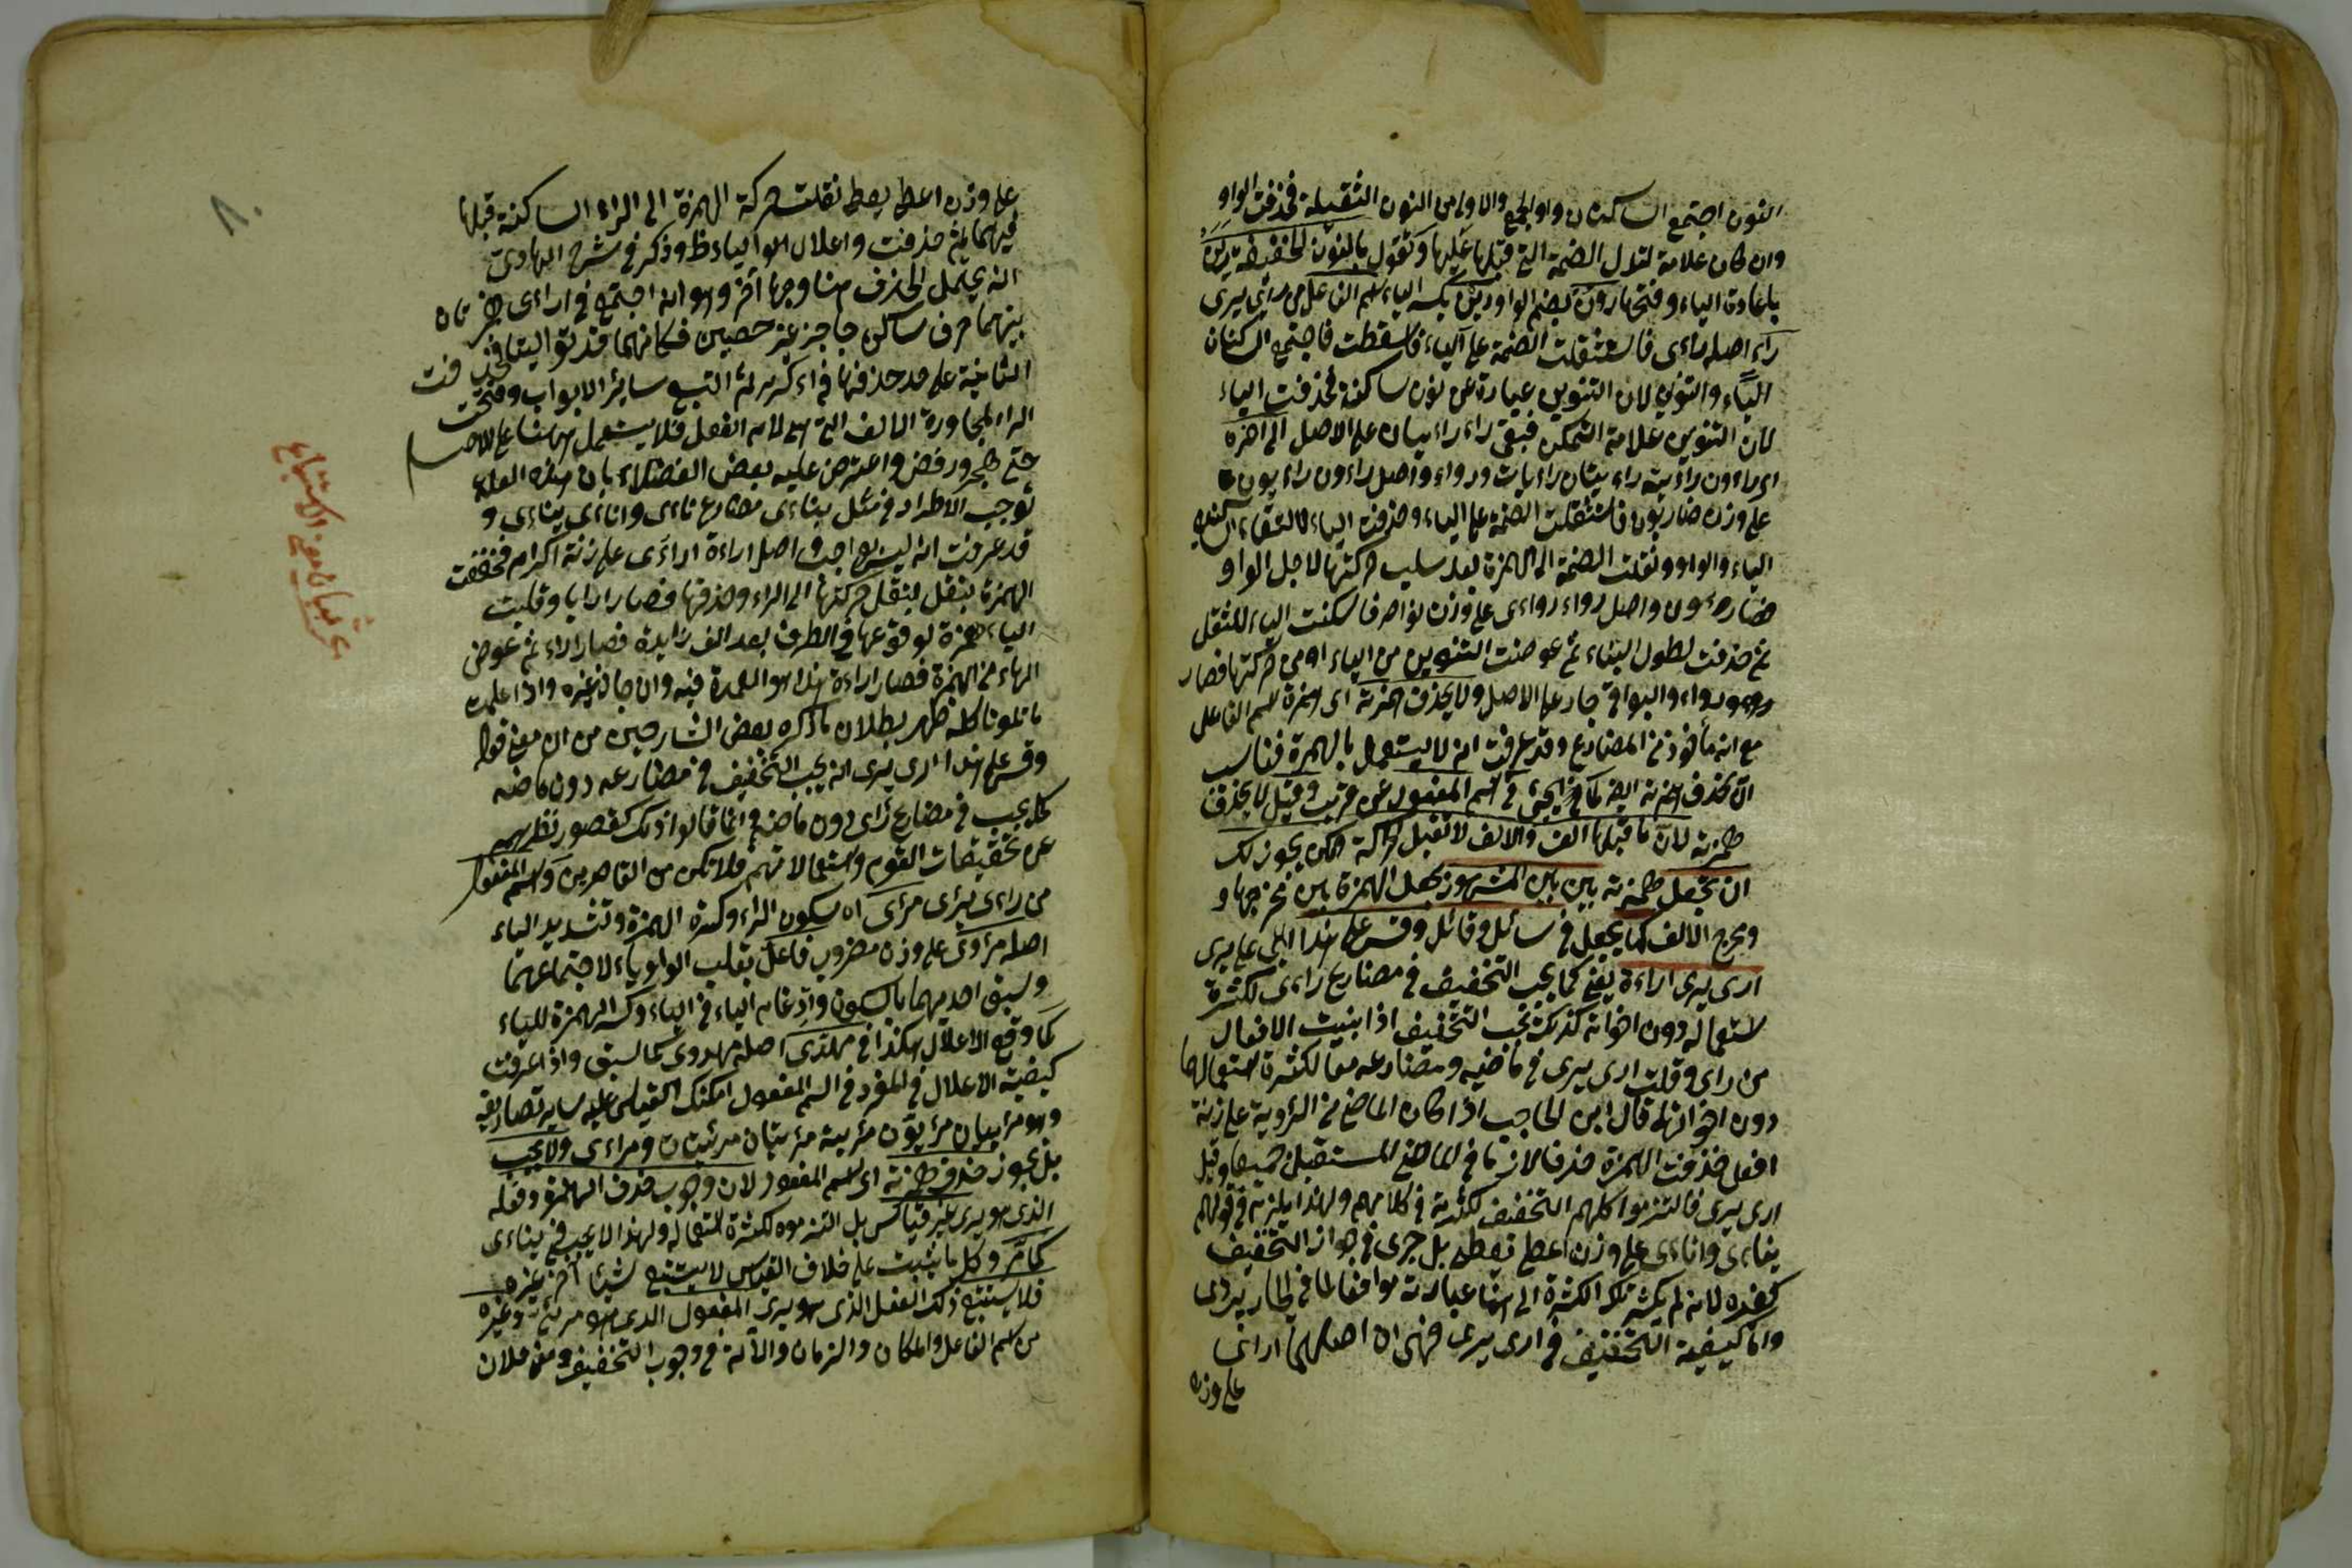 النون اجتمع الساكنان واو الجمع والاولى من النون الثقيلة فحذفت الواو
وان كان علامة لتدل الضمة التى قبلها عليها وتقول بالنون الخفيفة رين
باعادة الياء وفتحها رون بضم الواو ورين بكسر الياء اسم الفاعل من رأى يرى
راء اصله راءى فاستثقلت الضمة على الياء فاسقطت فاجتمع الساكنان
الياء والتنوين لان التنوين عبارة عن نون ساكنة فحذفت الياء
لان التنوين علامة التمكن فبقى راء راءيان على الاصل الى آخره
اى راءون راءية راءيتان راءيات ورواء واصل راءون راءيون
على وزن ضاربون فاستثقلت الضمة على الياء وحذفت الياء لالتقاء الساكنين
الياء والواو ونقلت الضمة الى الهمزة بعد سلب حركتها لاجل الواو
فصار راءون واصل رواء رواءى على وزن نواصر فاسكنت الياء للثقل
ثم حذفت لطول البناء ثم عوضت التنوين من الياء او من حركتها فصار
رواء والبواقى جار على الاصل ولا يحذف همزته اى همزة اسم الفاعل
مع انه مأخوذ من المضارع وقد عرفت انه لا يستعمل بالهمزة فناسب
ان تحذف همزته ايضا كما يجئ فى اسم المفعول عن قريب وقيل لا يحذف
همزته لان ما قبلها الف والالف لا تقبل الحركة لكن يجوز لك
ان تجعل همزته بين بين المشهور بجعل الهمزة بين مخرجها و
ومخرج الالف كما يجعل فى سائل وقائل وقس على هذا اى على يرى
ارى يرى اراءة يعنى كما يجب التخفيف فى مضارع راءى لكثرة
استعماله دون اخواته كذلك يجب التخفيف اذا بنيت الافعال
من راى وقلت ارى يرى فى ماضيه ومضارعه معا لكثرة استعمالها
دون اخواتها قال ابن الحاجب اذا كان الماضى من الرؤية على زنة
افعل حذفت الهمزة حذفا لازما فى الماضى المستقبل جميعا وقيل
ارى يرى فالتزموا كلهم التخفيف لكثرته فى كلامهم ولهذا لم يلزم فى قولهم
يناءى واناءى على وزن اعطى يعطى بل جرى فى جواز التخفيف
كغيره لانه لم يكثر تلك الكثرة الى هنا عبارته موافقا لما فى الجاربردى
واما كيفية التخفيف فى ارى يرى فهى ان اصلهما ارأى
على وزن
على وزن اعطى يعطى نقلت حركة الهمزة الى الراء الساكنة قبلها
فيهما ثم حذفت واعلال الياء ظ وذكر فى شرح الهادى
انه يحتمل الحذف هنا وجها آخر وهو انه اجتمع فى ارأى همزتان
بينهما حرف ساكن حاجز غير حصين فكانهما قد توالیتا فحذفت
الثانية على حد حذفها فى اكرم ثم اتبع سائر الابواب وفتحت
الراء لمجاورة الالف التى هى لام الفعل فلا يستعمل ههنا على الاصل
حتى هجر ورفض واعترض عليه بعض الفضلاء بان هذه العلة
توجب الاطراد فى مثل يناءى مضارع ناءى واناءى يناءى و
قد عرفت انه ليس بواجب واصل اراءة اراءى على زنة اكرام فخففت
الهمزة بنقل حركتها الى الراء وحذفها فصار ارايا وقلبت
الياء همزة لوقوعها فى الطرف بعد الف زائدة فصار اراء ثم عوض
الهاء من الهمزة فصار اراءة هذا هو العمدة فيه وان جاز غيره واذا علمت
ما تلونا كله ظهر بطلان ما ذكره بعض الشارحين من ان معنى قوله
وقس على هذا ارى يرى انه يجب التخفيف فى مضارعه دون ماضيه
كما يجب فى مضارع رأى دون ماضيه وانما قالوا ذلك لقصور نظرهم
عن تحقيقات القوم واستعمالاتهم فلا تكن من القاصرين واسم المفعول
من راءى يرى مرءى اه بسكون الراء وكسرة الهمزة وتشديد الياء
اصله مرءوى على وزن مضروب فاعل بقلب الواو ياء لاجتماعهما
وسبق احديهما بالسكون وادغام الياء فى الياء وكسر الهمزة للياء
كما وقع الاعلال هكذا فى مهدى اصله مهدوى كما سبق واذا عرفت
كيفية الاعلال فى المفرد فى اسم المفعول امكنك القياس عليه سائر تصاريفه
وهو مرءيان مرءيون مرءية مرءيتان مرئيات ومراءى ولا يجب
بل يجوز حذف همزته اى اسم المفعول لان وجوب حذف الهمزة فى فعله
الذى هو يرى غير قياس بل التزموه لكثرة استعماله ولهذا لا يجب فى يناءى
كما مر وكل ما يثبت على خلاف القياس لا يستتبع شيئا آخر غيره
فلا يستتبع ذلك الفعل الذى هو يرى المفعول الذى هو مرئى وغيره
من اسم الفاعل والمكان والزمان والآلة فى وجوب التخفيف ومنه فلان